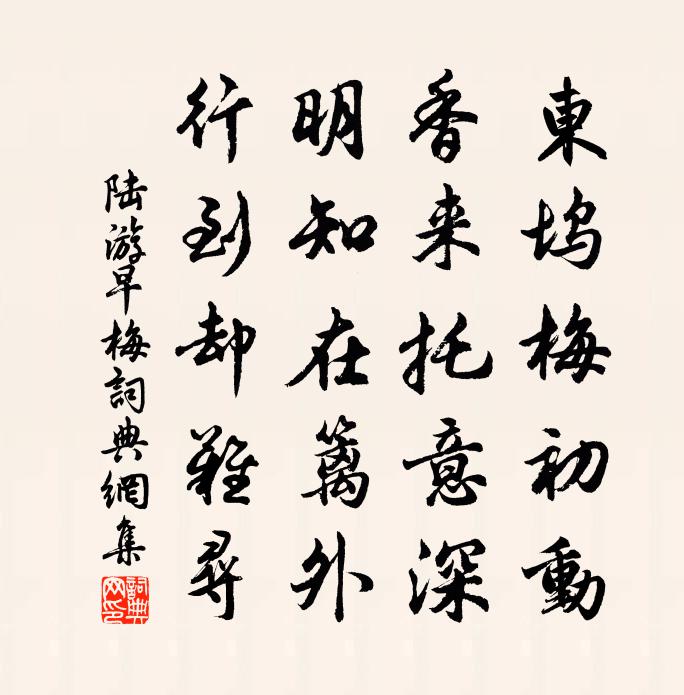 東坞梅初動
香来托意深
明知在篱外
行到却難尋
陆游早梅詞典網集
詞典網印